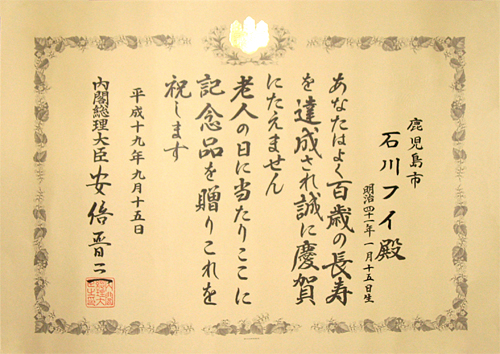 鹿児島市
石川フイ殿
明治四十一年一月十五日生
あなたはよく百歳の長寿
を達成され誠に慶賀
にたえません
老人の日に当たりここに
記念品を贈りこれを
祝します
平成十九年九月十五日
内閣総理大臣 安倍晋三